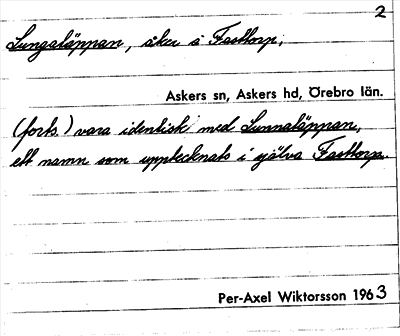 2
Lungaläppan, åker i Fasttorp.
Askers sn, Askers hd, Örebro län.
(forts.) vara identisk med Lunnaläppan,
ett namn som upptecknats i själva Fasttorp.
Per-Axel Wiktorsson 1963